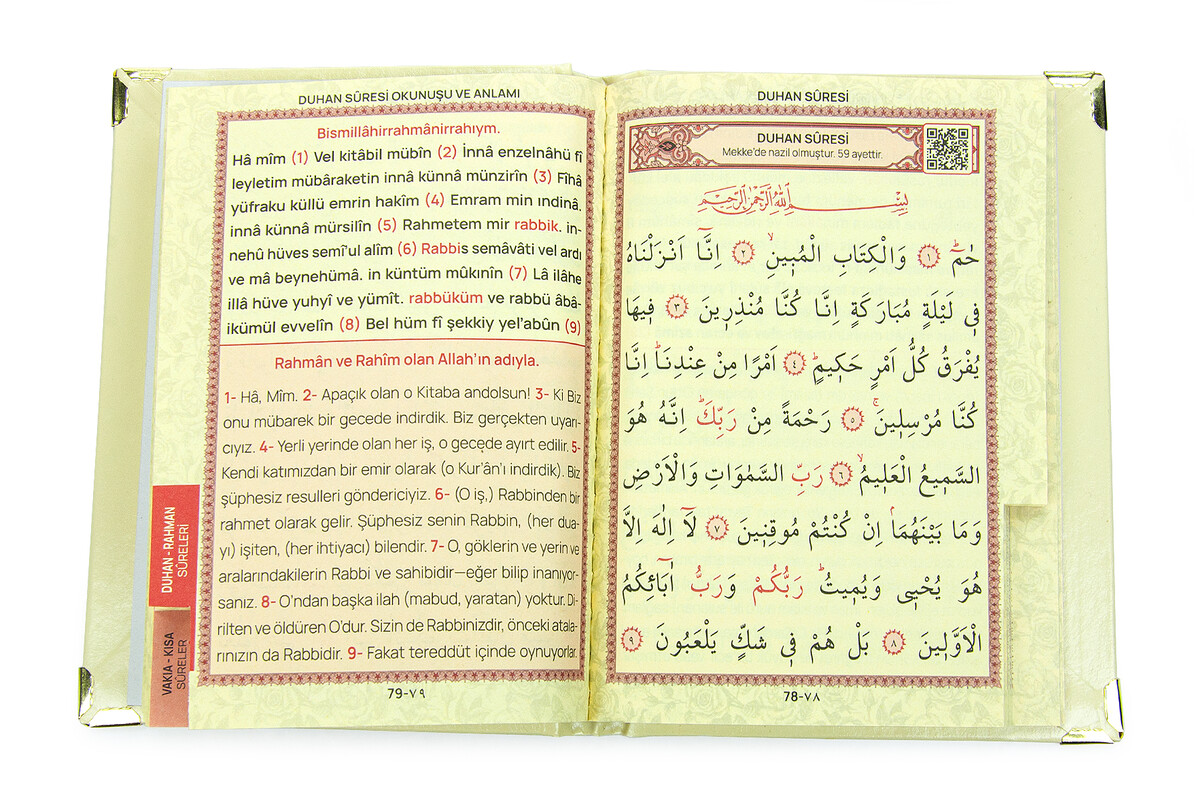 DUHAN SÛRESİ OKUNUŞU VE ANLAMI
Bismillâhirrahmânirrahıym.
Hâ mîm (1) Vel kitâbil mübîn (2) İnnâ enzelnâhü fî
leyletim mübâraketin innâ künnâ münzirîn (3) Fîhâ
yüfraku küllü emrin hakîm (4) Emram min ındinâ.
innâ künnâ mürsilîn (5) Rahmetem mir rabbik. in-
nehû hüves semî'ul alîm (6) Rabbis semâvâti vel ardı
ve mâ beynehümâ. in küntüm mûkınîn (7) Lâ ilâhe
illâ hüve yuhyî ve yümît. rabbüküm ve rabbü âbâ-
ikümül evvelîn (8) Bel hüm fî şekkiy yel'abûn (9)
Rahmân ve Rahîm olan Allah'ın adıyla.
1- Hâ, Mîm. 2- Apaçık olan o Kitaba andolsun! 3- Ki Biz
onu mübarek bir gecede indirdik. Biz gerçekten uyarı-
cıyız. 4- Yerli yerinde olan her iş, o geçede ayırt edilir. 5-
Kendi katımızdan bir emir olarak (o Kur'ân'ı indirdik). Biz
şüphesiz resulleri göndericiyiz. 6- (O iş,) Rabbinden bir
rahmet olarak gelir. Şüphesiz senin Rabbin, (her dua-
yı) işiten, (her ihtiyacı) bilendir. 7- O, göklerin ve yerin ve
aralarındakilerin Rabbi ve sahibidir—eğer bilip inanıyor-
sanız. 8- O'ndan başka ilah (mabud, yaratan) yoktur. Di-
rilten ve öldüren O'dur. Sizin de Rabbinizdir, önceki atala-
rınızın da Rabbidir. 9- Fakat tereddüt içinde oynuyorlar.
79-٧٩
DUHAN - RAHMAN
SÛRELERİ
VAKIA - KISA
SÛRELER
DUHAN SÛRESİ
DUHAN SÛRESİ
Mekke'de nazil olmuştur. 59 ayettir.
بِسْمِ اللّٰهِ الرَّحْمٰنِ الرَّحٖيمِ
حٰمٓۜ ﴿١﴾ وَالْكِتَابِ الْمُبٖينِۙ ﴿٢﴾ اِنَّٓا اَنْزَلْنَاهُ
فٖي لَيْلَةٍ مُبَارَكَةٍ اِنَّا كُنَّا مُنْذِرٖينَ ﴿٣﴾ فٖيهَا
يُفْرَقُ كُلُّ اَمْرٍ حَكٖيمٍۜ ﴿٤﴾ اَمْرًا مِنْ عِنْدِنَاۜ اِنَّا
كُنَّا مُرْسِلٖينَۚ ﴿٥﴾ رَحْمَةً مِنْ رَبِّكَۜ اِنَّهُ هُوَ
السَّمٖيعُ الْعَلٖيمُۙ ﴿٦﴾ رَبِّ السَّمٰوَاتِ وَالْاَرْضِ
وَمَا بَيْنَهُمَاۢ اِنْ كُنْتُمْ مُوقِنٖينَ ﴿٧﴾ لَٓا اِلٰهَ اِلَّا
هُوَ يُحْيٖي وَيُمٖيتُۜ رَبُّكُمْ وَرَبُّ اٰبَٓائِكُمُ
الْاَوَّلٖينَ ﴿٨﴾ بَلْ هُمْ فٖي شَكٍّ يَلْعَبُونَ ﴿٩﴾
78-٧٨